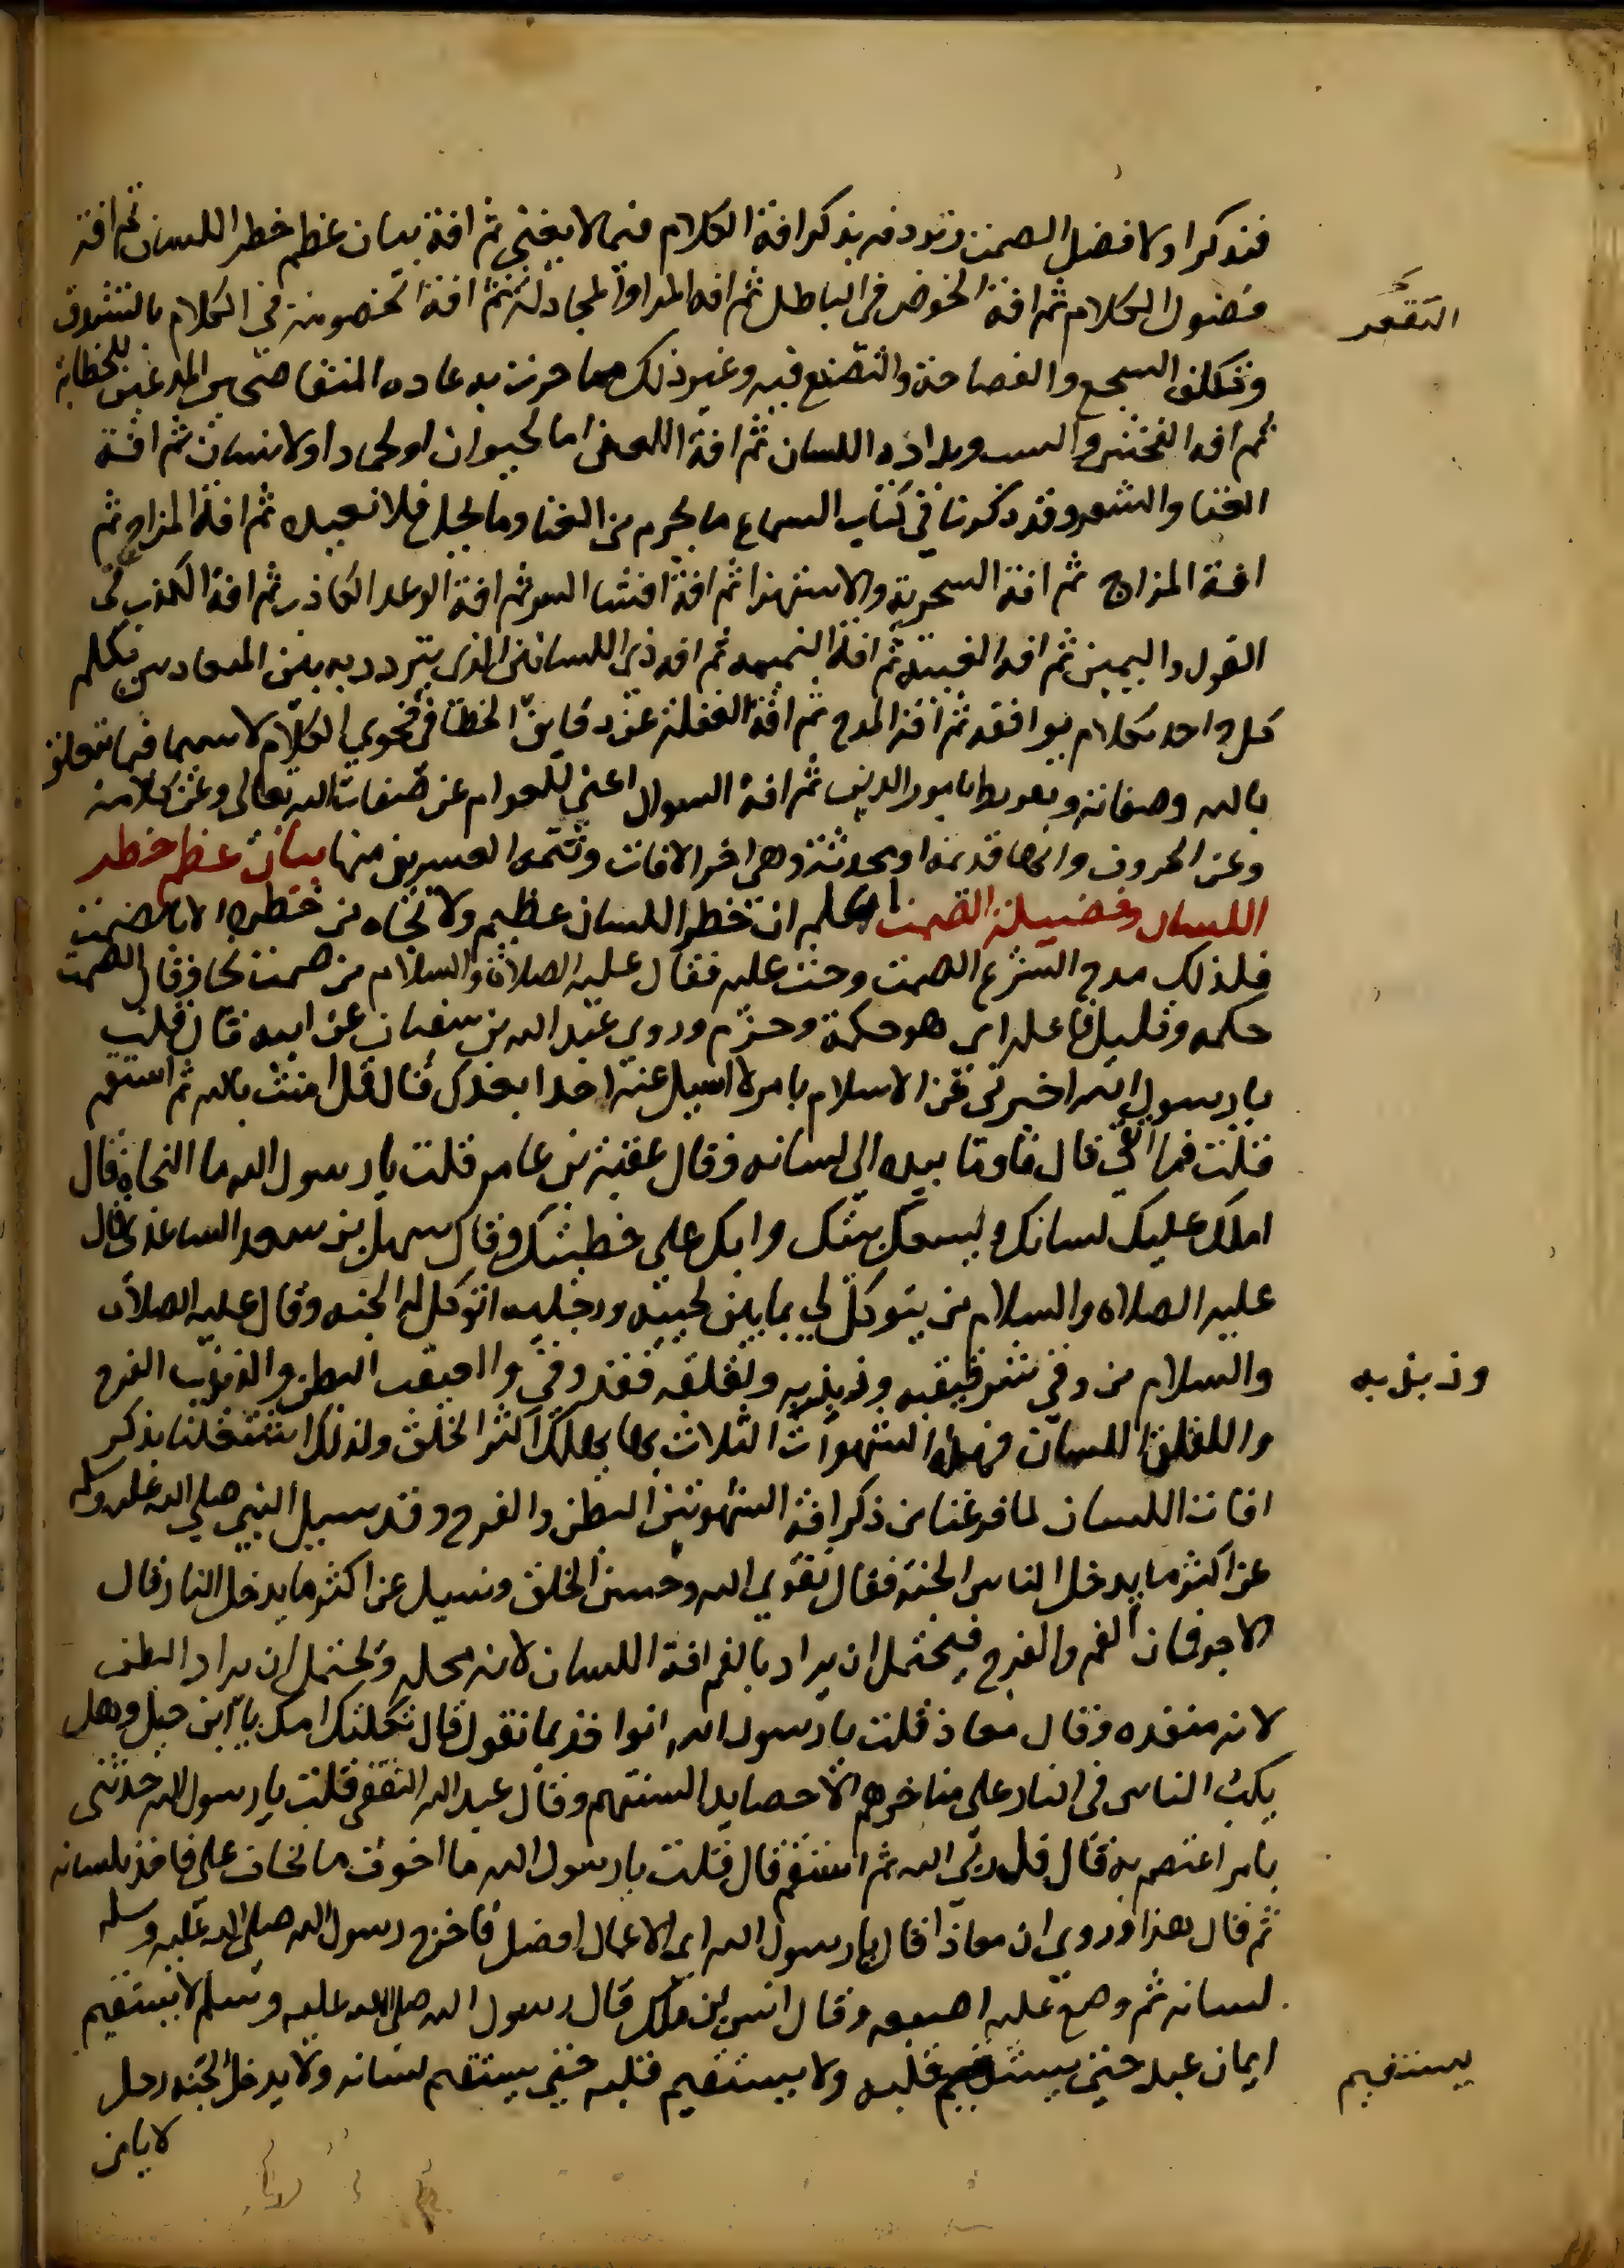 فنذكر اولا فضل الصمت ونردفه بذكر افة الكلام فيما لا يعني ثم افة بيان عظم خطر اللسان ثم افة
فضول الكلام ثم افة الخوض في الباطل ثم افه المرا والمجادلة ثم افة الخصومة في الكلام بالتشدق
التقعر
وتكلف السجع والفصاحة والتصنع فيه وغير ذلك مما جرت به عاده المتفاصحين المدعين للخطابة
ثم افه الفحش والسب وبذاذه اللسان ثم افة اللعن اما لحيوان او لجماد او لانسان ثم افة
الغنا والشعر وقد ذكرنا في كتاب السماع ما يحرم من الغنا وما يحل فلا نعيده ثم افة المزاح ثم
افة المزاح ثم افة السخرية والاستهزا ثم افة افشا السر ثم افة الوعد الكاذب ثم افة الكذب في
القول واليمين ثم افه الغيبة ثم افة النميمه ثم افه ذي اللسانين الذي يتردد به بين المتعادين يكلم
كل واحد بكلام يوافقه ثم افة المدح ثم افة الغفلة عن دقايق الخطا في فحوي الكلام لا سيما فيما يتعلق
بالله وصفاته ويرتبط بامور الدين ثم افة السوال اعني للعوام عن صفات الله تعالى وعن كلامه
وعن الحروف وانها قديمه او محدثة وهي اخر الافات وتتمه العشرين منها بيان عظم خطر
اللسان وفضيلة الصمت اعلم ان خطر اللسان عظيم ولا نجاه من خطره الا بالصمت
فلذلك مدح الشرع الصمت وحث عليه فقال عليه الصلاة والسلام من صمت نجا وقال الصمت
حكمه وقليل فاعله اي هو حكمة وحزم وروي عبد الله بن سفيان عن ابيه قال قلت
يا رسول الله اخبرني عن الاسلام بامر لا اسيل عنه احدا بعدك قال قل امنت بالله ثم استقم
قلت فما اتقي قال فاومأ بيده الي لسانه وقال عقبة بن عامر قلت يا رسول الله ما النجاة قال
املك عليك لسانك وليسعك بيتك وابك علي خطيتك وقال سهل بن سعد الساعدي قال
عليه الصلاه والسلام من يتوكل لي بما بين لحييه ورجليه اتوكل له الجنه وقال عليه الصلاة
والسلام من وقي شر قبقبه وذبذبه ولقلقه فقد وقي والقبقب البطن والذبذب الفرج
وذبذبه
واللقلق اللسان فهذه الشهوات الثلاث بها يهلك اكثر الخلق ولذلك اشتغلنا بذكر
افات اللسان لما فرغنا من ذكر افة الشهوتين البطن والفرج وقد سيل النبي صلي الله عليه وسلم
عن اكثر ما يدخل الناس الجنة فقال تقوي الله وحسن الخلق وسيل عن اكثر ما يدخل النار فقال
الاجوفان الفم والفرج فيحتمل ان يراد بالفم افة اللسان لانه محله ويحتمل ان يراد البطن
لانه منفذه وقال معاذ قلت يا رسول الله انواخذ بما نقول قال ثكلتك امك يا ابن جبل وهل
يكب الناس في النار علي مناخرهم الا حصايد السنتهم وقال عبد الله الثقفي قلت يا رسول الله حدثني
بامر اعتصم به قال قل ربي الله ثم استقم قال قلت يا رسول الله ما اخوف ما تخاف علي فاخذ بلسانه
ثم قال هذا وروي ان معاذا قال يا رسول الله اي الاعمال افضل فاخرج رسول الله صلى الله عليه وسلم
لسانه ثم وضع عليه اصبعه وقال انس بن ملك قال رسول الله صلى الله عليه وسلم لا يستقيم
ايمان عبد حتي يستقيم قلبه ولا يستقيم قلبه حتي يستقيم لسانه ولا يدخل الجنه رجل
يستقيم
لا يامن